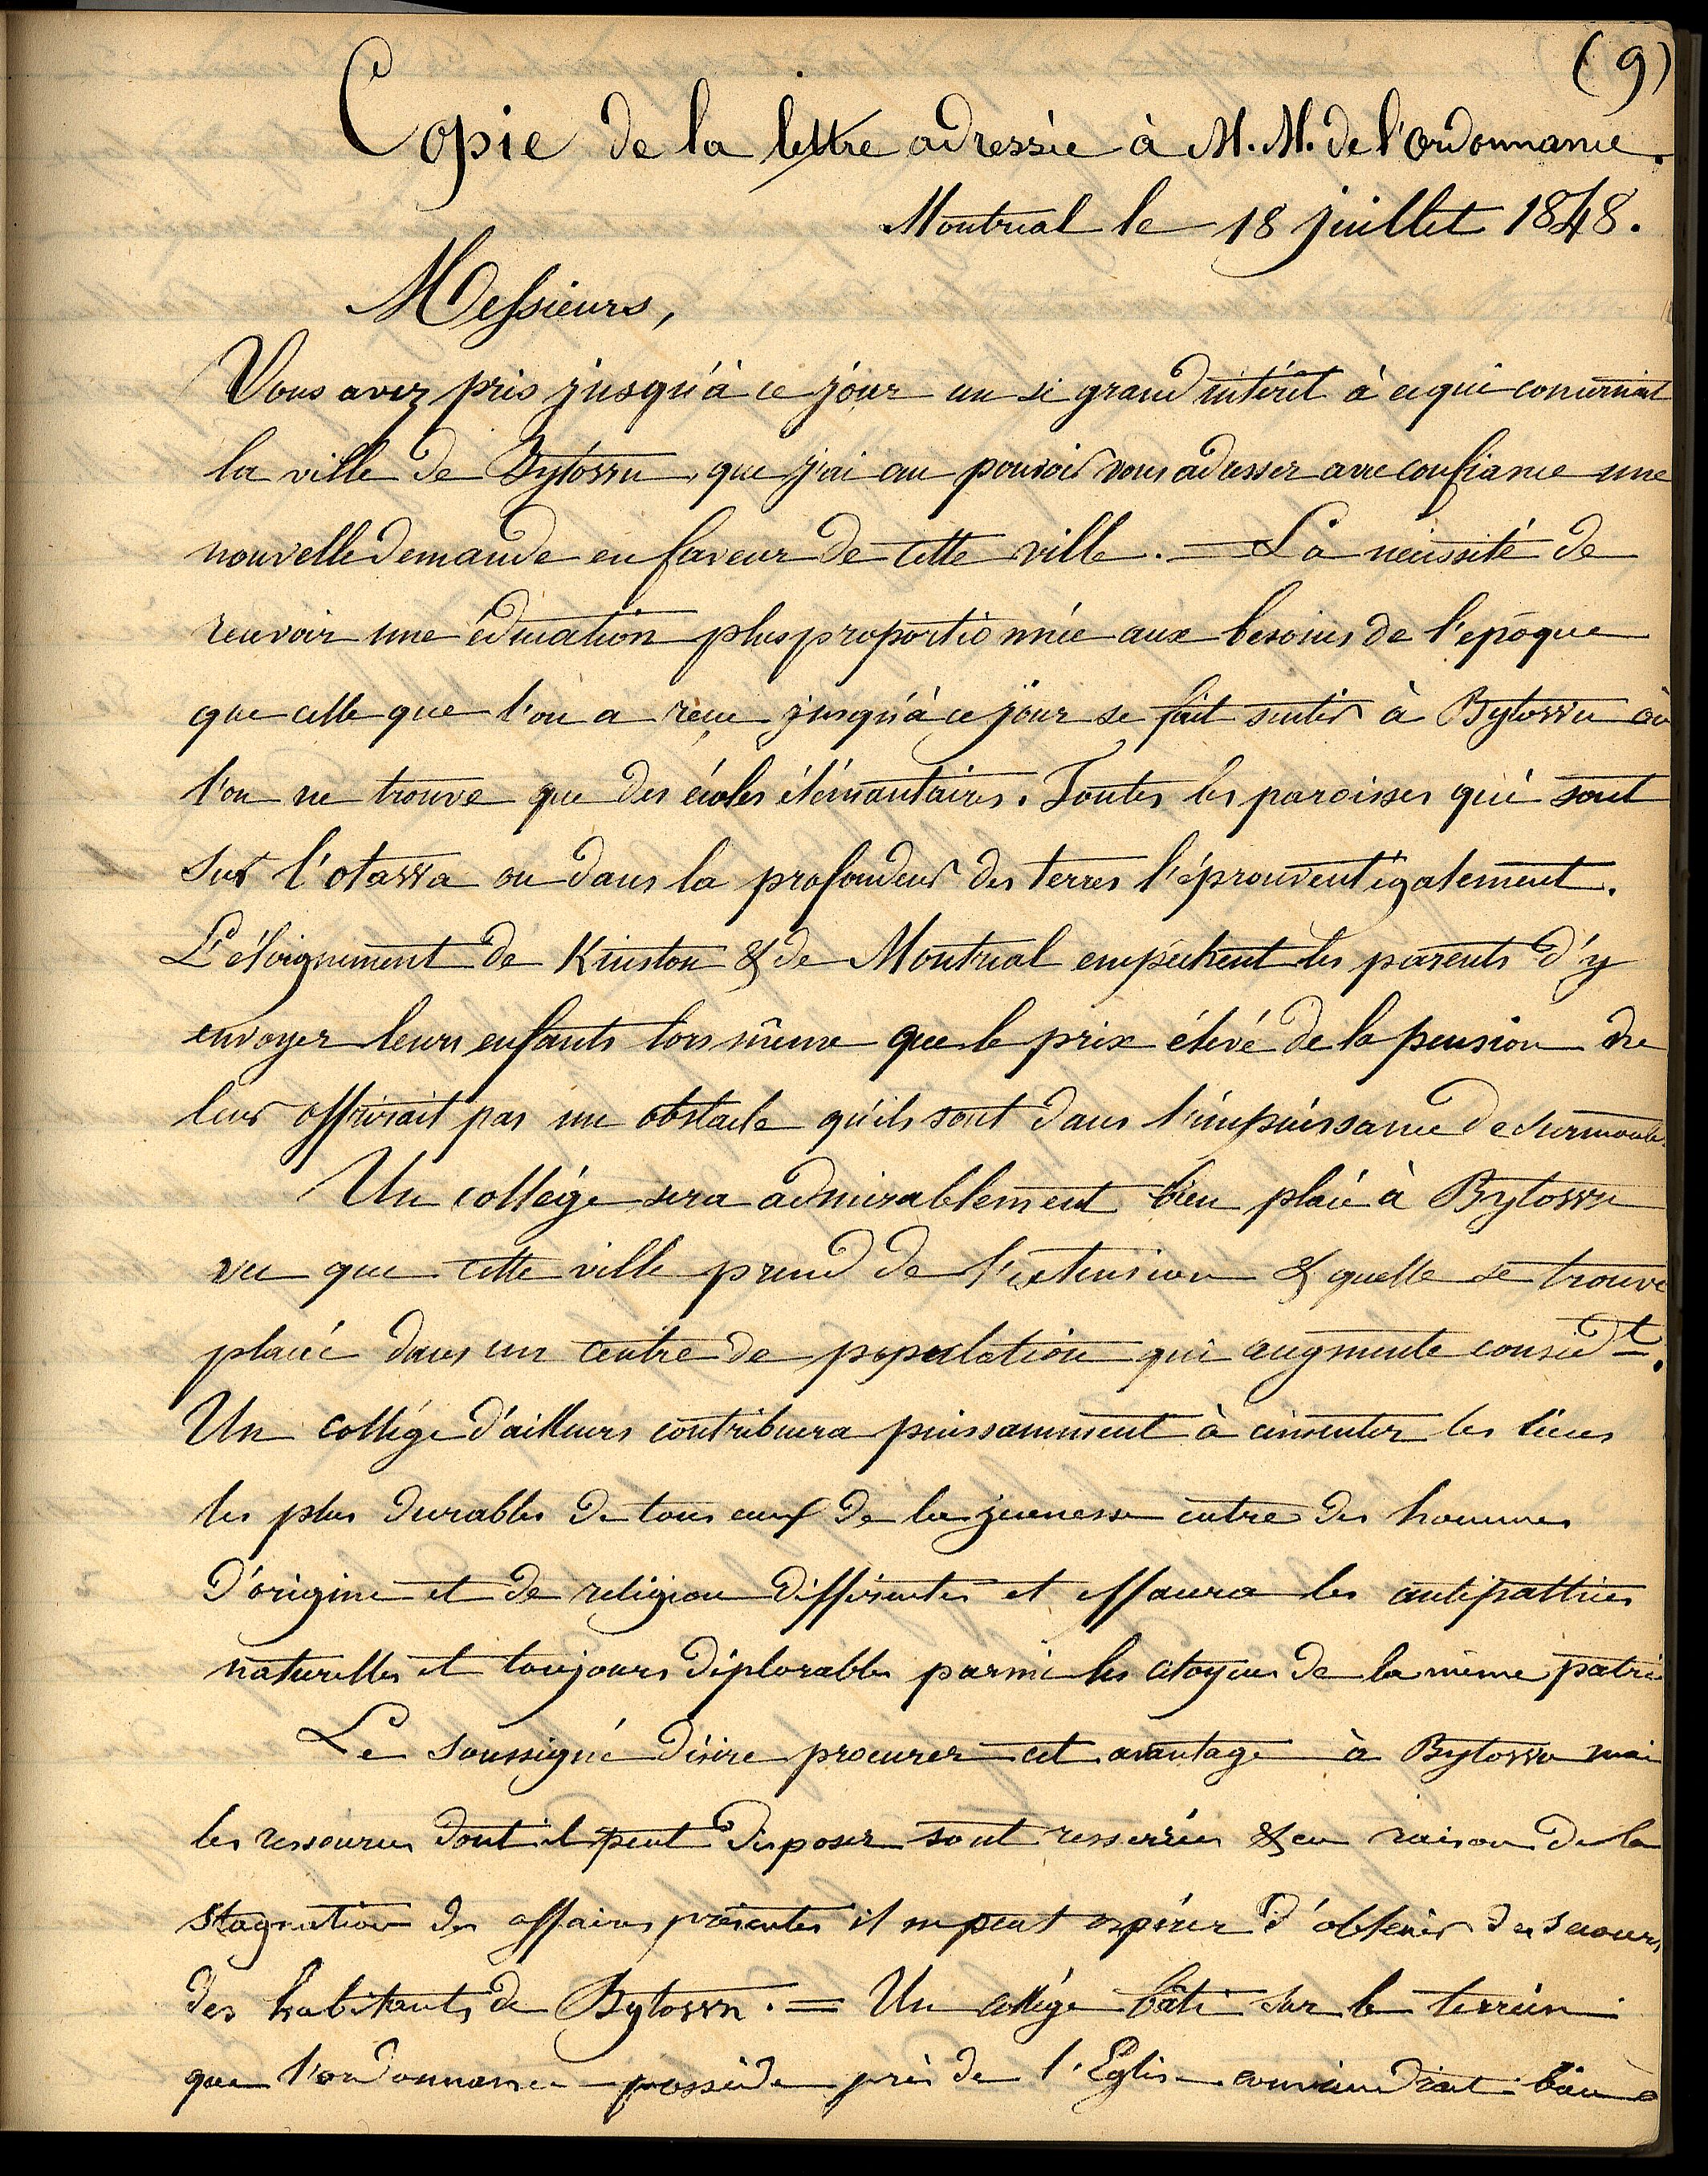 (9)
Copie de la lettre adressée à M. M. de l'Ordonnance.
Montréal le 18 juillet 1848.
Messieurs,
Vous avez pris jusqu'à ce jour un si grand intérêt à ce qui concernait
la ville de Bytown, que j'ai cru pouvoir vous adresser avec confiance une
nouvelle demande en faveur de cette ville. — La nécessité de
recevoir une éducation plus proportionnée aux besoins de l'époque
que celle que l'on a reçue jusqu'à ce jour se fait sentir à Bytown où
l'on ne trouve que des écoles élémantaires. Toutes les paroisses qui sont
sur l'otawa ou dans la profondeur des terres l'éprouvent également.
L'éloignement de Kinston & de Montréal empêchent les parents d'y
envoyer leurs enfants lors même que le prix élévé de la pension ne
leur offrirait pas un obstacle qu'ils sont dans l'impuissance de surmonter
Un collége sera admirablement bien placé à Bytown
vu que cette ville prend de l'extension & quelle se trouve
placée dans un centre de population qui augmente considt.
Un collége d'ailleurs contribuera puissamment à cimenter les liens
les plus durables de tous ceux de la jeunesse entre des hommes
d'origine et de religion différentes et effacera les antipatties
naturelles et toujours déplorables parmi les citoyens de la même patrie
Le soussigné désire procurer cet avantage à Bytown mai
les ressources dont il peut disposer sont resserrées & en raison de la
stagnation des affaires présentes il ne peut espérer d'obtenir des secours
des habitants de Bytown. = Un collége bâti sur le terrein
que l'ordonnance possède près de l'Eglise conviendrait bien